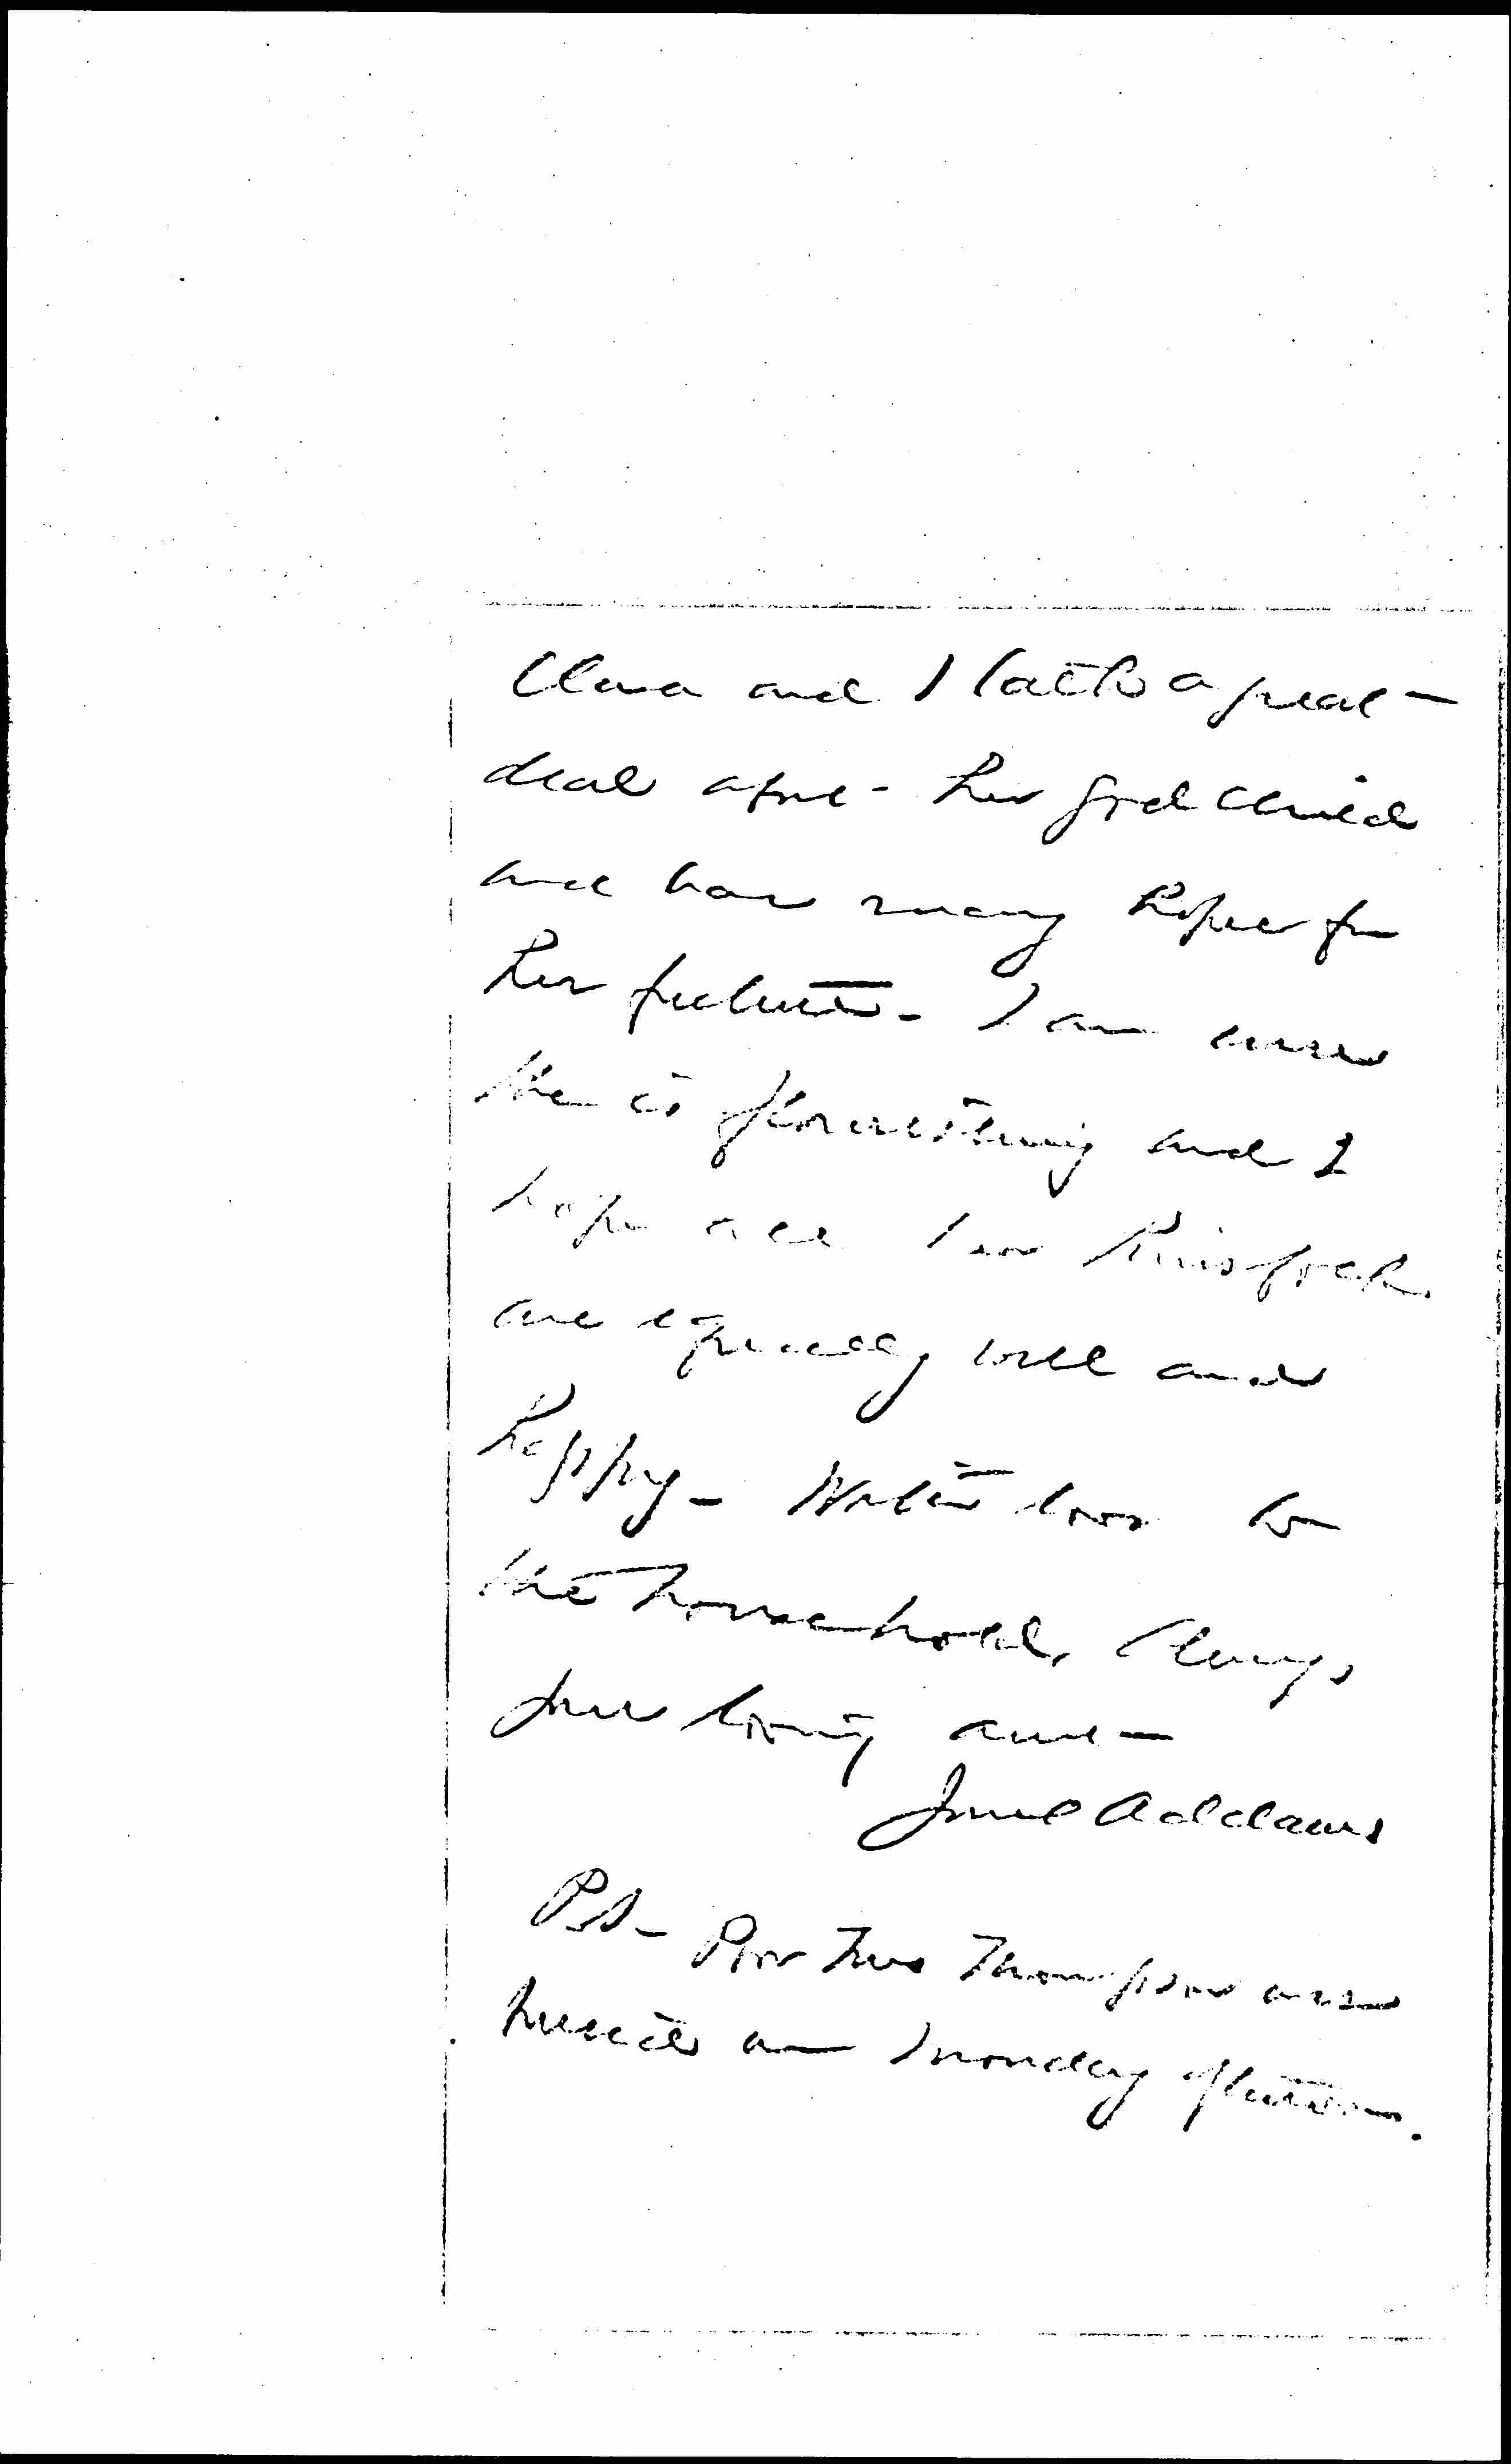 Clara and I talk a great
deal about her god child
and have many hopes for
her future - I am sure
she is flourishing and I
hope all her kinsfolk
are equally well and
happy - With love to
the household, Always
your loving aunt
Jane Addams
P.S. - Poor Mrs Thompson was
buried on Monday afternoon.